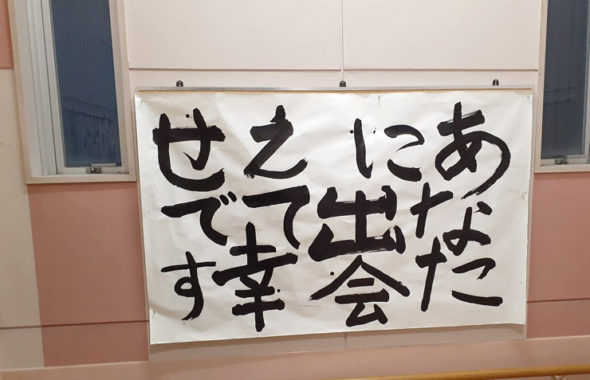 あなた
に出会
えて幸
せです